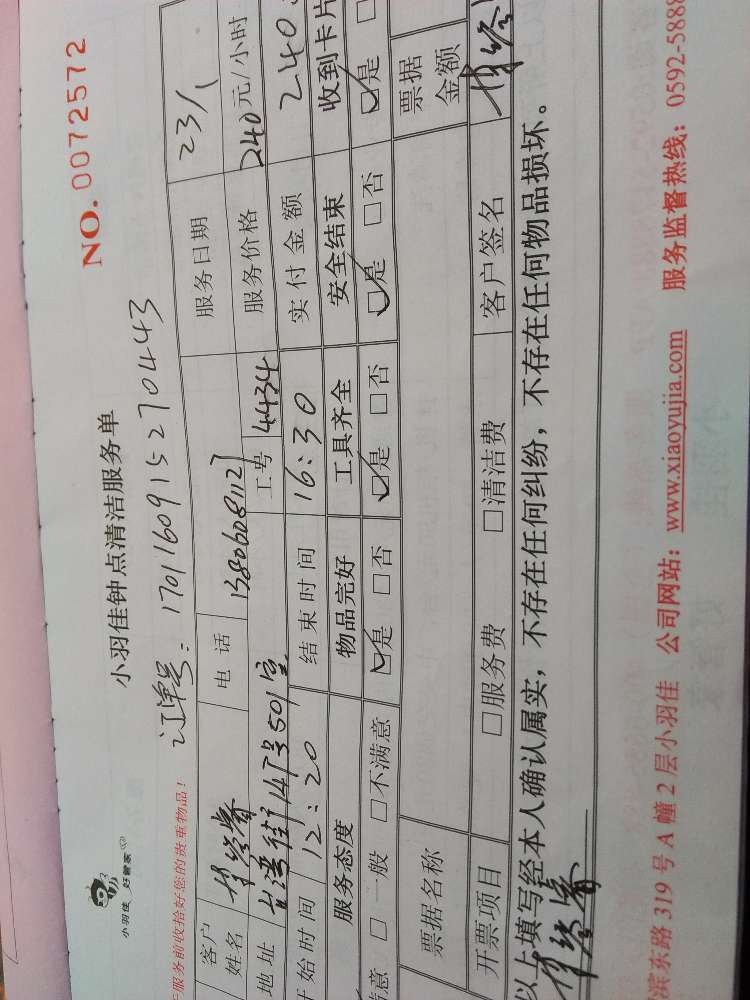 小羽佳 好管家
小羽佳钟点清洁服务单
NO. 0072572
服务前收拾好您的贵重物品!
订单号: 1701160915270443
客户姓名 电话 服务日期 23/1
地址 台湾街 501室 工号 4434 服务价格 240元/小时
开始时间 12:20 结束时间 16:30 实付金额 240
服务态度 物品完好 工具齐全 安全结束 收到卡片
满意 □一般 □不满意 ☑是 □否 ☑是 □否 ☑是 □否 ☑是 □
票据名称 票据金额
开票项目 □服务费 □清洁费 客户签名
以上填写经本人确认属实,不存在任何纠纷,不存在任何物品损坏。
滨东路319号A幢2层小羽佳 公司网站:www.xiaoyujia.com 服务监督热线:0592-5888